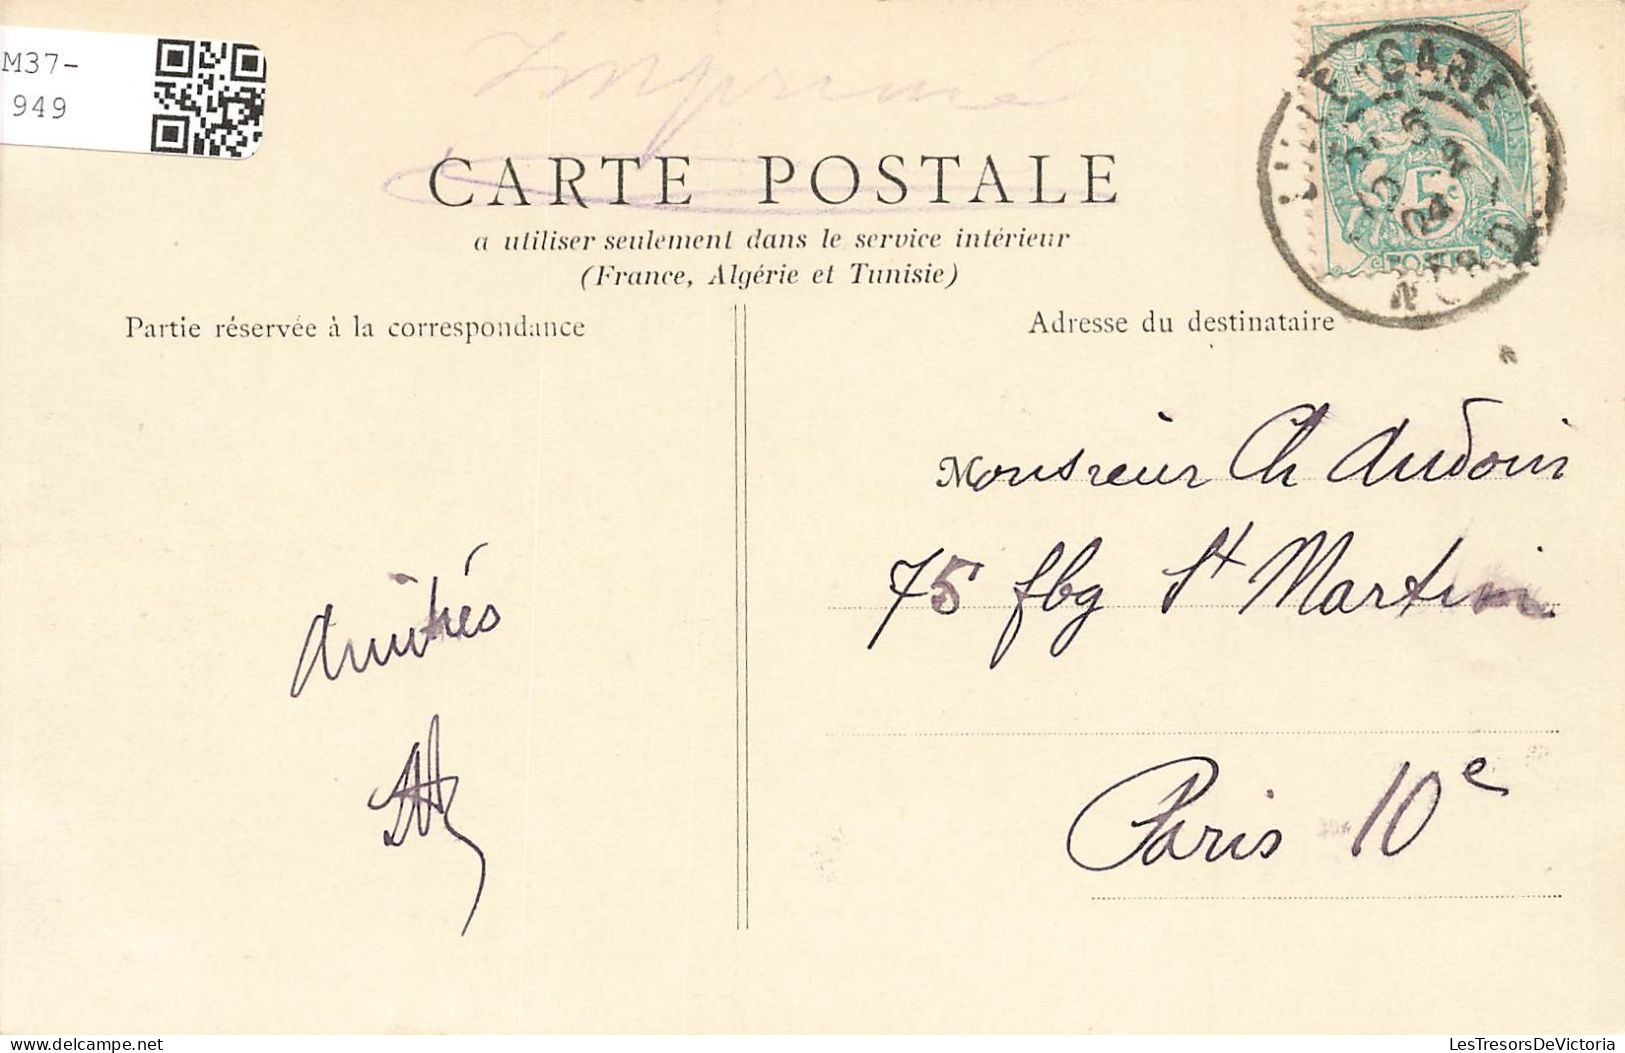 M37-
949
Imprimé
CARTE POSTALE
a utiliser seulement dans le service intérieur
(France, Algérie et Tunisie)
Partie réservée à la correspondance
Adresse du destinataire
LILLE GARE
04
NORD
5c
POSTES
Monsieur Ch Audoin
75 fbg St Martin
Paris 10e
Amitiés
delcampe.net
LesTresorsDeVictoria